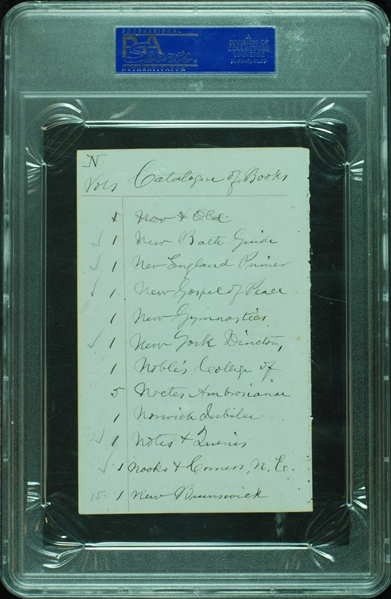 PROFESSIONAL
PSA
Sports
AUTHENTICATOR
A
DIVISION OF
COLLECTORS
UNIVERSE
N
Vols Catalogue of Books
1 Now & Old
✓ 1 New Bath Guide
✓ 1 New England Primer
✓ 1 New Gospel of Peace
1 New Gymnastics
✓ 1 New York Directory
1 Noble's College of
5 Noctes Ambrosianae
1 Norwich Jubilee
✓ 1 Notes & Queries
✓ 1 Nooks & Corners, N. E.
1 New Brunswick